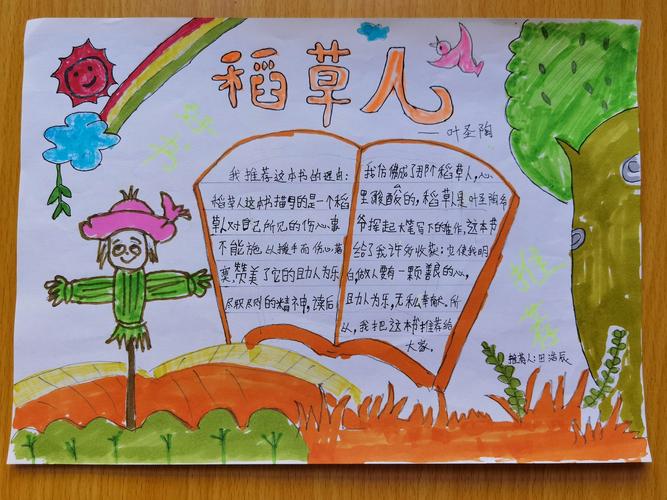 稻草人
——叶圣陶
我推荐这本书的理由:
稻草人这本书描写的是一个稻
草人对自己所见的伤心事
不能施以援手而伤心落
寞,赞美了它的助人为乐
尽职尽责的精神,读后
我仿佛成了那个稻草人,心
里酸的,稻草人是叶圣陶爷
爷挥起大笔写下的佳作,这本书
给了我许多收获:它使我明
白,做人要有一颗善良的心,
助人为乐,无私奉献,所
以,我把这本书推荐给
大家。
推荐
推荐人:田浩辰